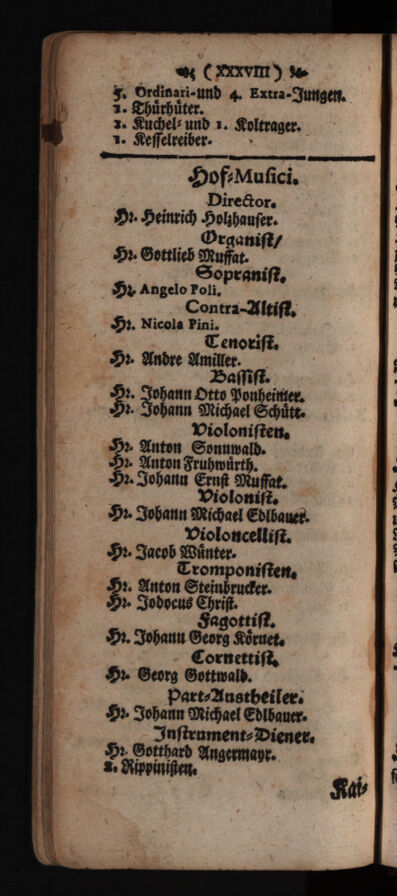 ( XXXVIII )
5. Ordinari-und 4. Extra-Jungen.
1. Thürhüter.
1. Kuchel- und 1. Koltrager.
1. Kesselreiber.
Hof-Musici.
Director.
Hr. Heinrich Holzhauser.
Organist/
Hr. Gottlieb Muffat.
Sopranist.
Hr. Angelo Poli.
Contra-Altist.
Hr. Nicola Pini.
Tenorist.
Hr. Andre Amiller.
Bassist.
Hr. Johann Otto Ponheimer.
Hr. Johann Michael Schütt.
Violonisten.
Hr. Anton Sonnwald.
Hr. Anton Fruhwürth.
Hr. Johann Ernst Muffat.
Violonist.
Hr. Johann Michael Edlbauer.
Violoncellist.
Hr. Jacob Wünter.
Tromponisten.
Hr. Anton Steinbrucker.
Hr. Jodocus Christ.
Fagottist.
Hr. Johann Georg Körnet.
Cornettist.
Hr. Georg Gottwald.
Part-Austheiler.
Hr. Johann Michael Edlbauer.
Instrument-Diener.
Hr. Gotthard Angermayr.
2. Rippinisten.
Kai-